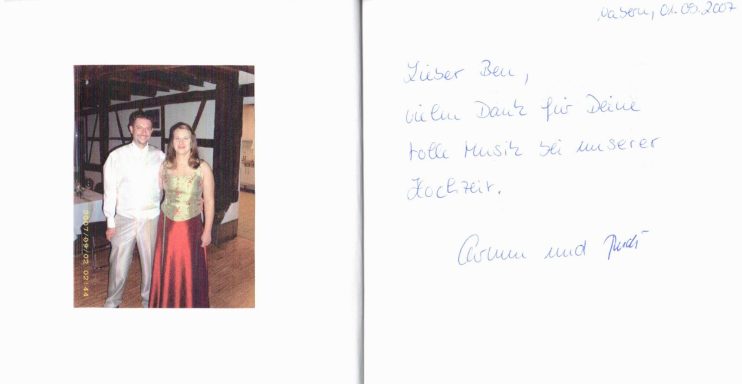 2007/09/02 02:44
01.09.2007
Lieber Ben,
vielen Dank für Deine
tolle Musik bei unserer
Hochzeit.
und